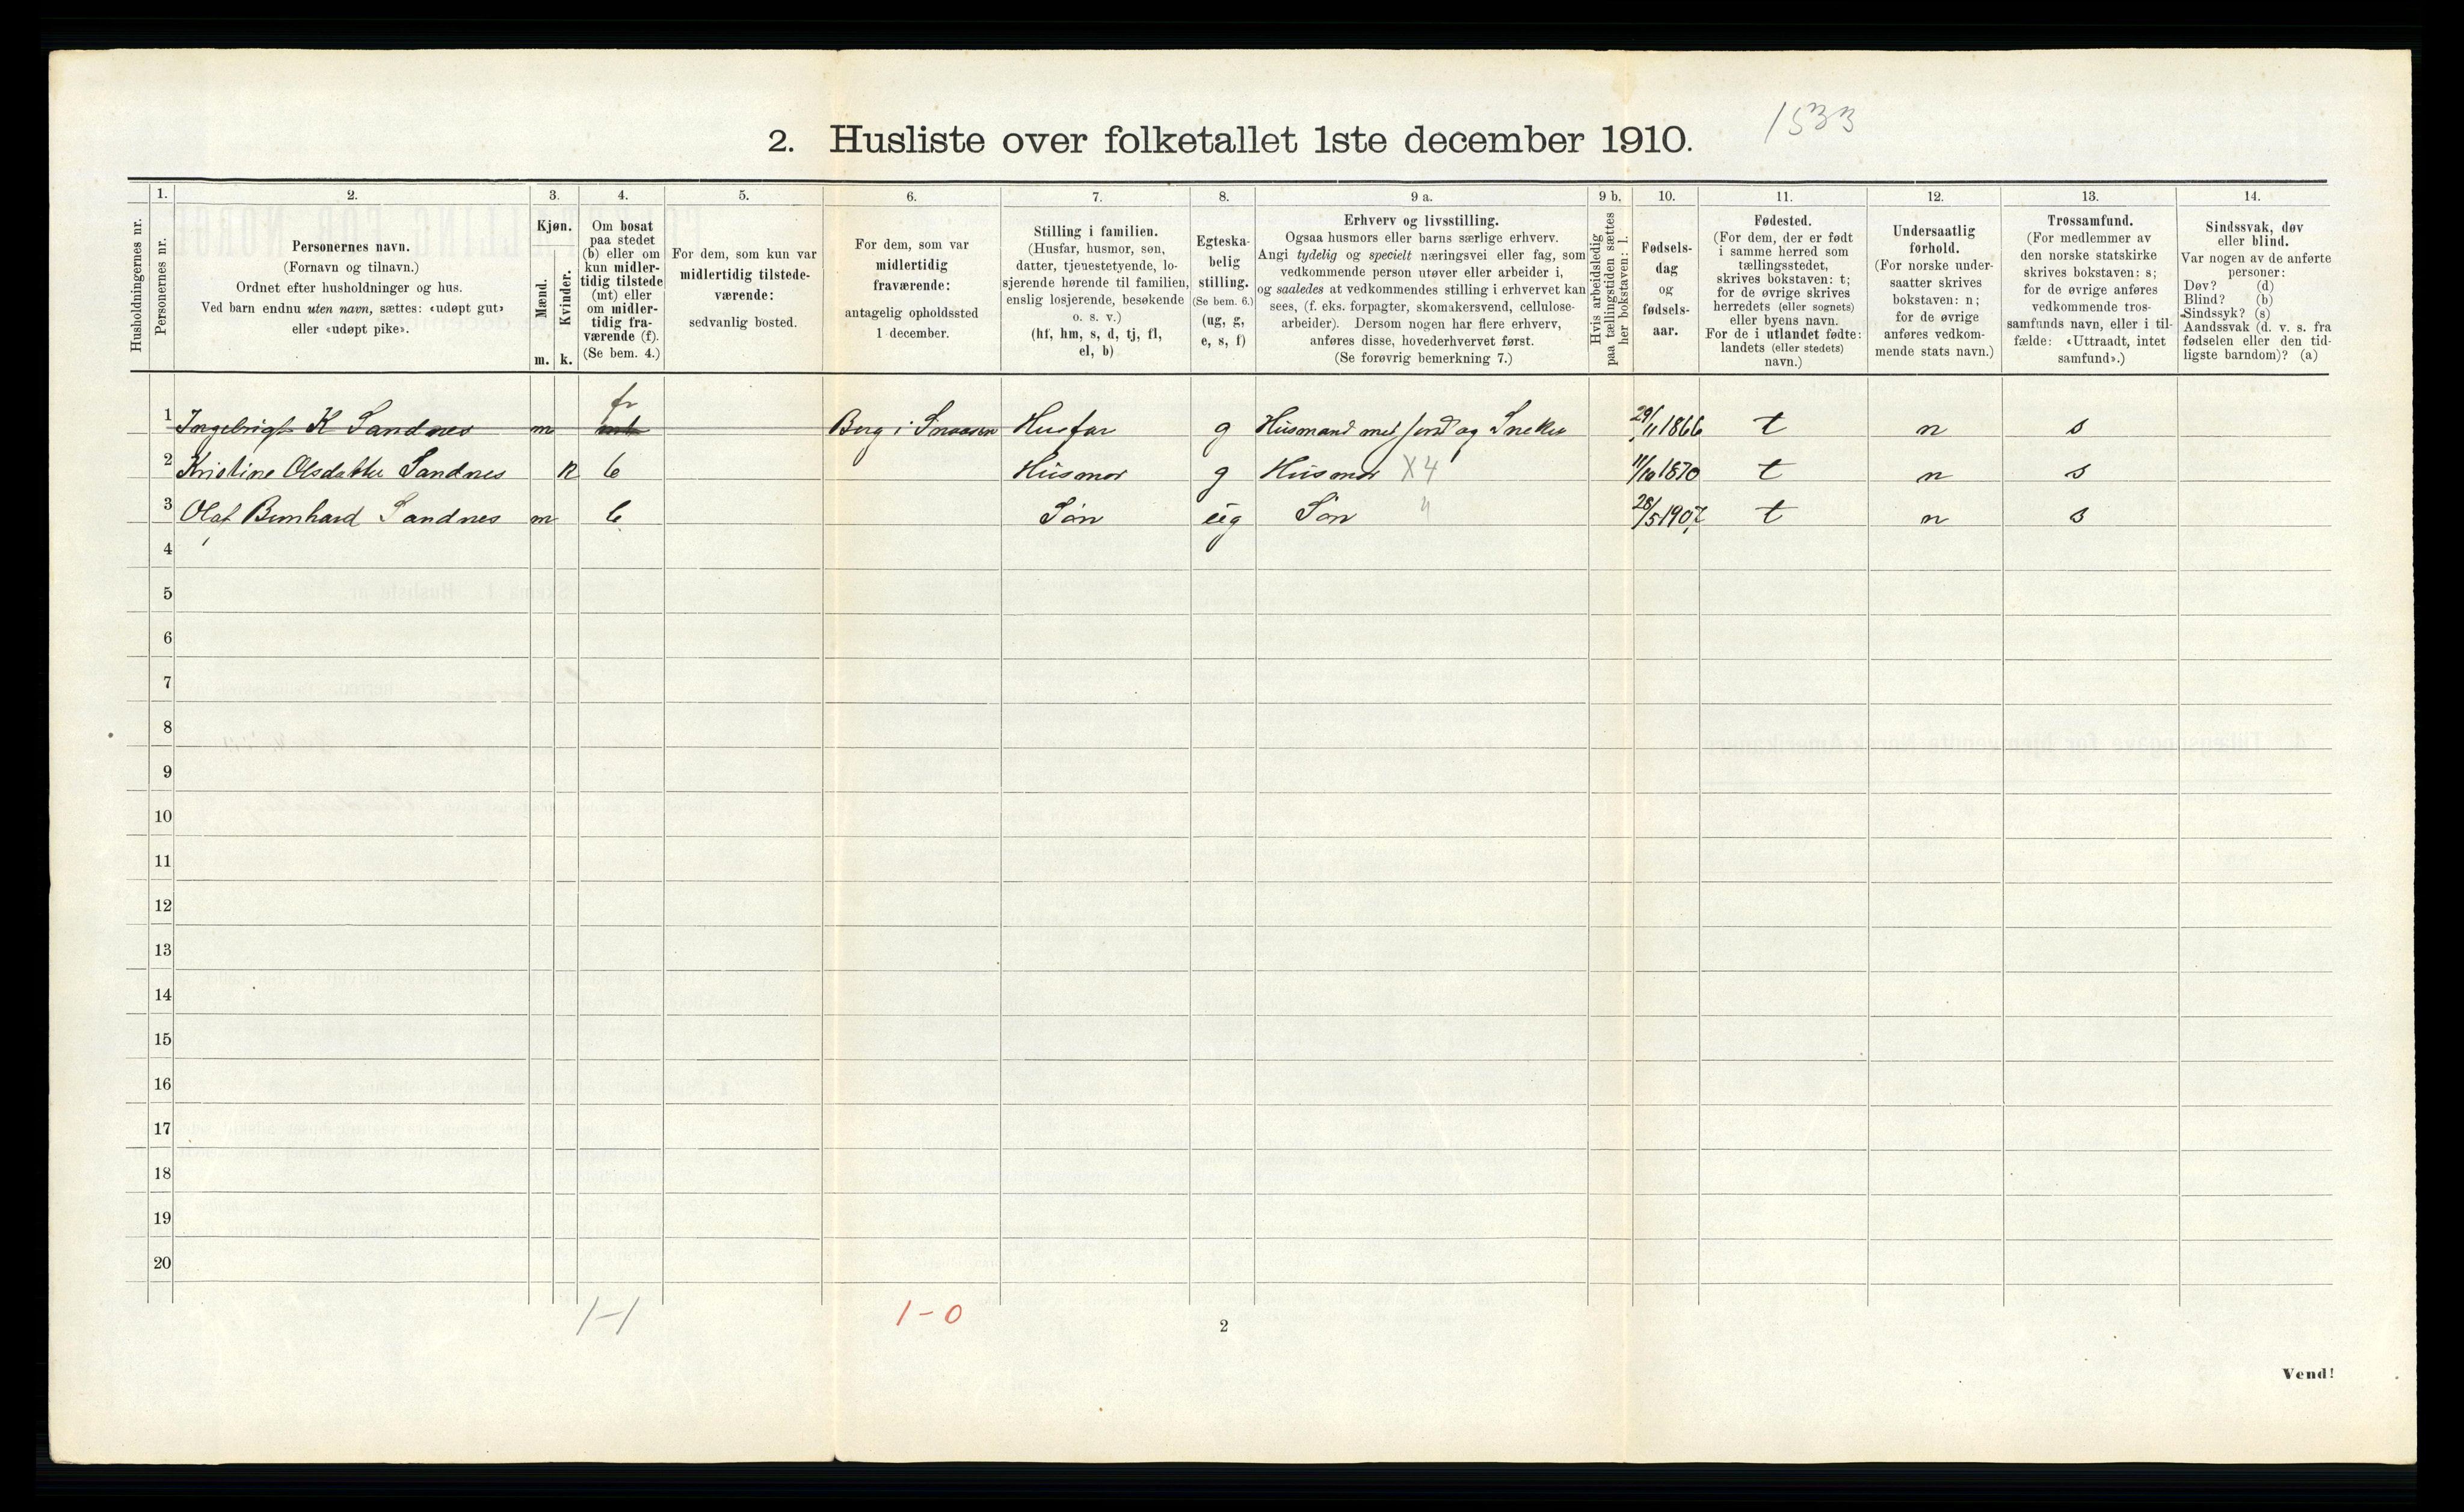 1533
2. Husliste over folketallet 1ste december 1910.
Husholdningernes nr.
1.
Personernes nr.
2.
Personernes navn.
(Fornavn og tilnavn.)
Ordnet efter husholdninger og hus.
Ved barn endnu uten navn, sættes: «udøpt gut»
eller «udøpt pike».
3.
Kjøn.
Mænd.
Kvinder.
m. k.
4.
Om bosat
paa stedet
(b) eller om
kun midler-
tidig tilstede
(mt) eller
om midler-
tidig fra-
værende (f).
(Se bem. 4.)
5.
For dem, som kun var
midlertidig tilstede-
værende:
sedvanlig bosted.
6.
For dem, som var
midlertidig
fraværende:
antagelig opholdssted
1 december.
7.
Stilling i familien.
(Husfar, husmor, søn,
datter, tjenestetyende, lo-
sjerende hørende til familien,
enslig losjerende, besøkende
o. s. v.)
(hf, hm, s, d, tj, fl,
el, b)
8.
Egteska-
belig
stilling.
(Se bem. 6.)
(ug, g,
e, s, f)
9 a.
Erhverv og livsstilling.
Ogsaa husmors eller barns særlige erhverv.
Angi tydelig og specielt næringsvei eller fag, som
vedkommende person utøver eller arbeider i,
og saaledes at vedkommendes stilling i erhvervet kan
sees, (f. eks. forpagter, skomakersvend, cellulose-
arbeider). Dersom nogen har flere erhverv,
anføres disse, hovederhvervet først.
(Se forøvrig bemerkning 7.)
9 b.
Hvis arbeidsledig
paa tællingstiden sættes
her bokstaven: l.
10.
Fødsels-
dag
og
fødsels-
aar.
11.
Fødested.
(For dem, der er født
i samme herred som
tællingsstedet,
skrives bokstaven: t;
for de øvrige skrives
herredets (eller sognets)
eller byens navn.
For de i utlandet fødte:
landets (eller stedets)
navn.)
12.
Undersaatlig
forhold.
(For norske under-
saatter skrives
bokstaven: n;
for de øvrige
anføres vedkom-
mende stats navn.)
13.
Trossamfund.
(For medlemmer av
den norske statskirke
skrives bokstaven: s;
for de øvrige anføres
vedkommende tros-
samfunds navn, eller i til-
fælde: «Uttraadt, intet
samfund».)
14.
Sindssvak, døv
eller blind.
Var nogen av de anførte
personer:
Døv? (d)
Blind? (b)
Sindssyk? (s)
Aandssvak (d. v. s. fra
fødselen eller den tid-
ligste barndom)? (a)
fr
1 Ingebrigt K Sandnes m mt Berg i Snaasen Husfar g Husmand med jord og Sneker 29/11 1866 t n s
2 Kristine Olsdatter Sandnes k b Husmor g Husmor X4 11/10 1870 t n s
3 Olaf Bernhard Sandnes m b Søn ug Søn 4 28/5 1907 t n s
4
5
6
7
8
9
10
11
12
13
14
15
16
17
18
19
20
1-1 1-0
2
Vend!